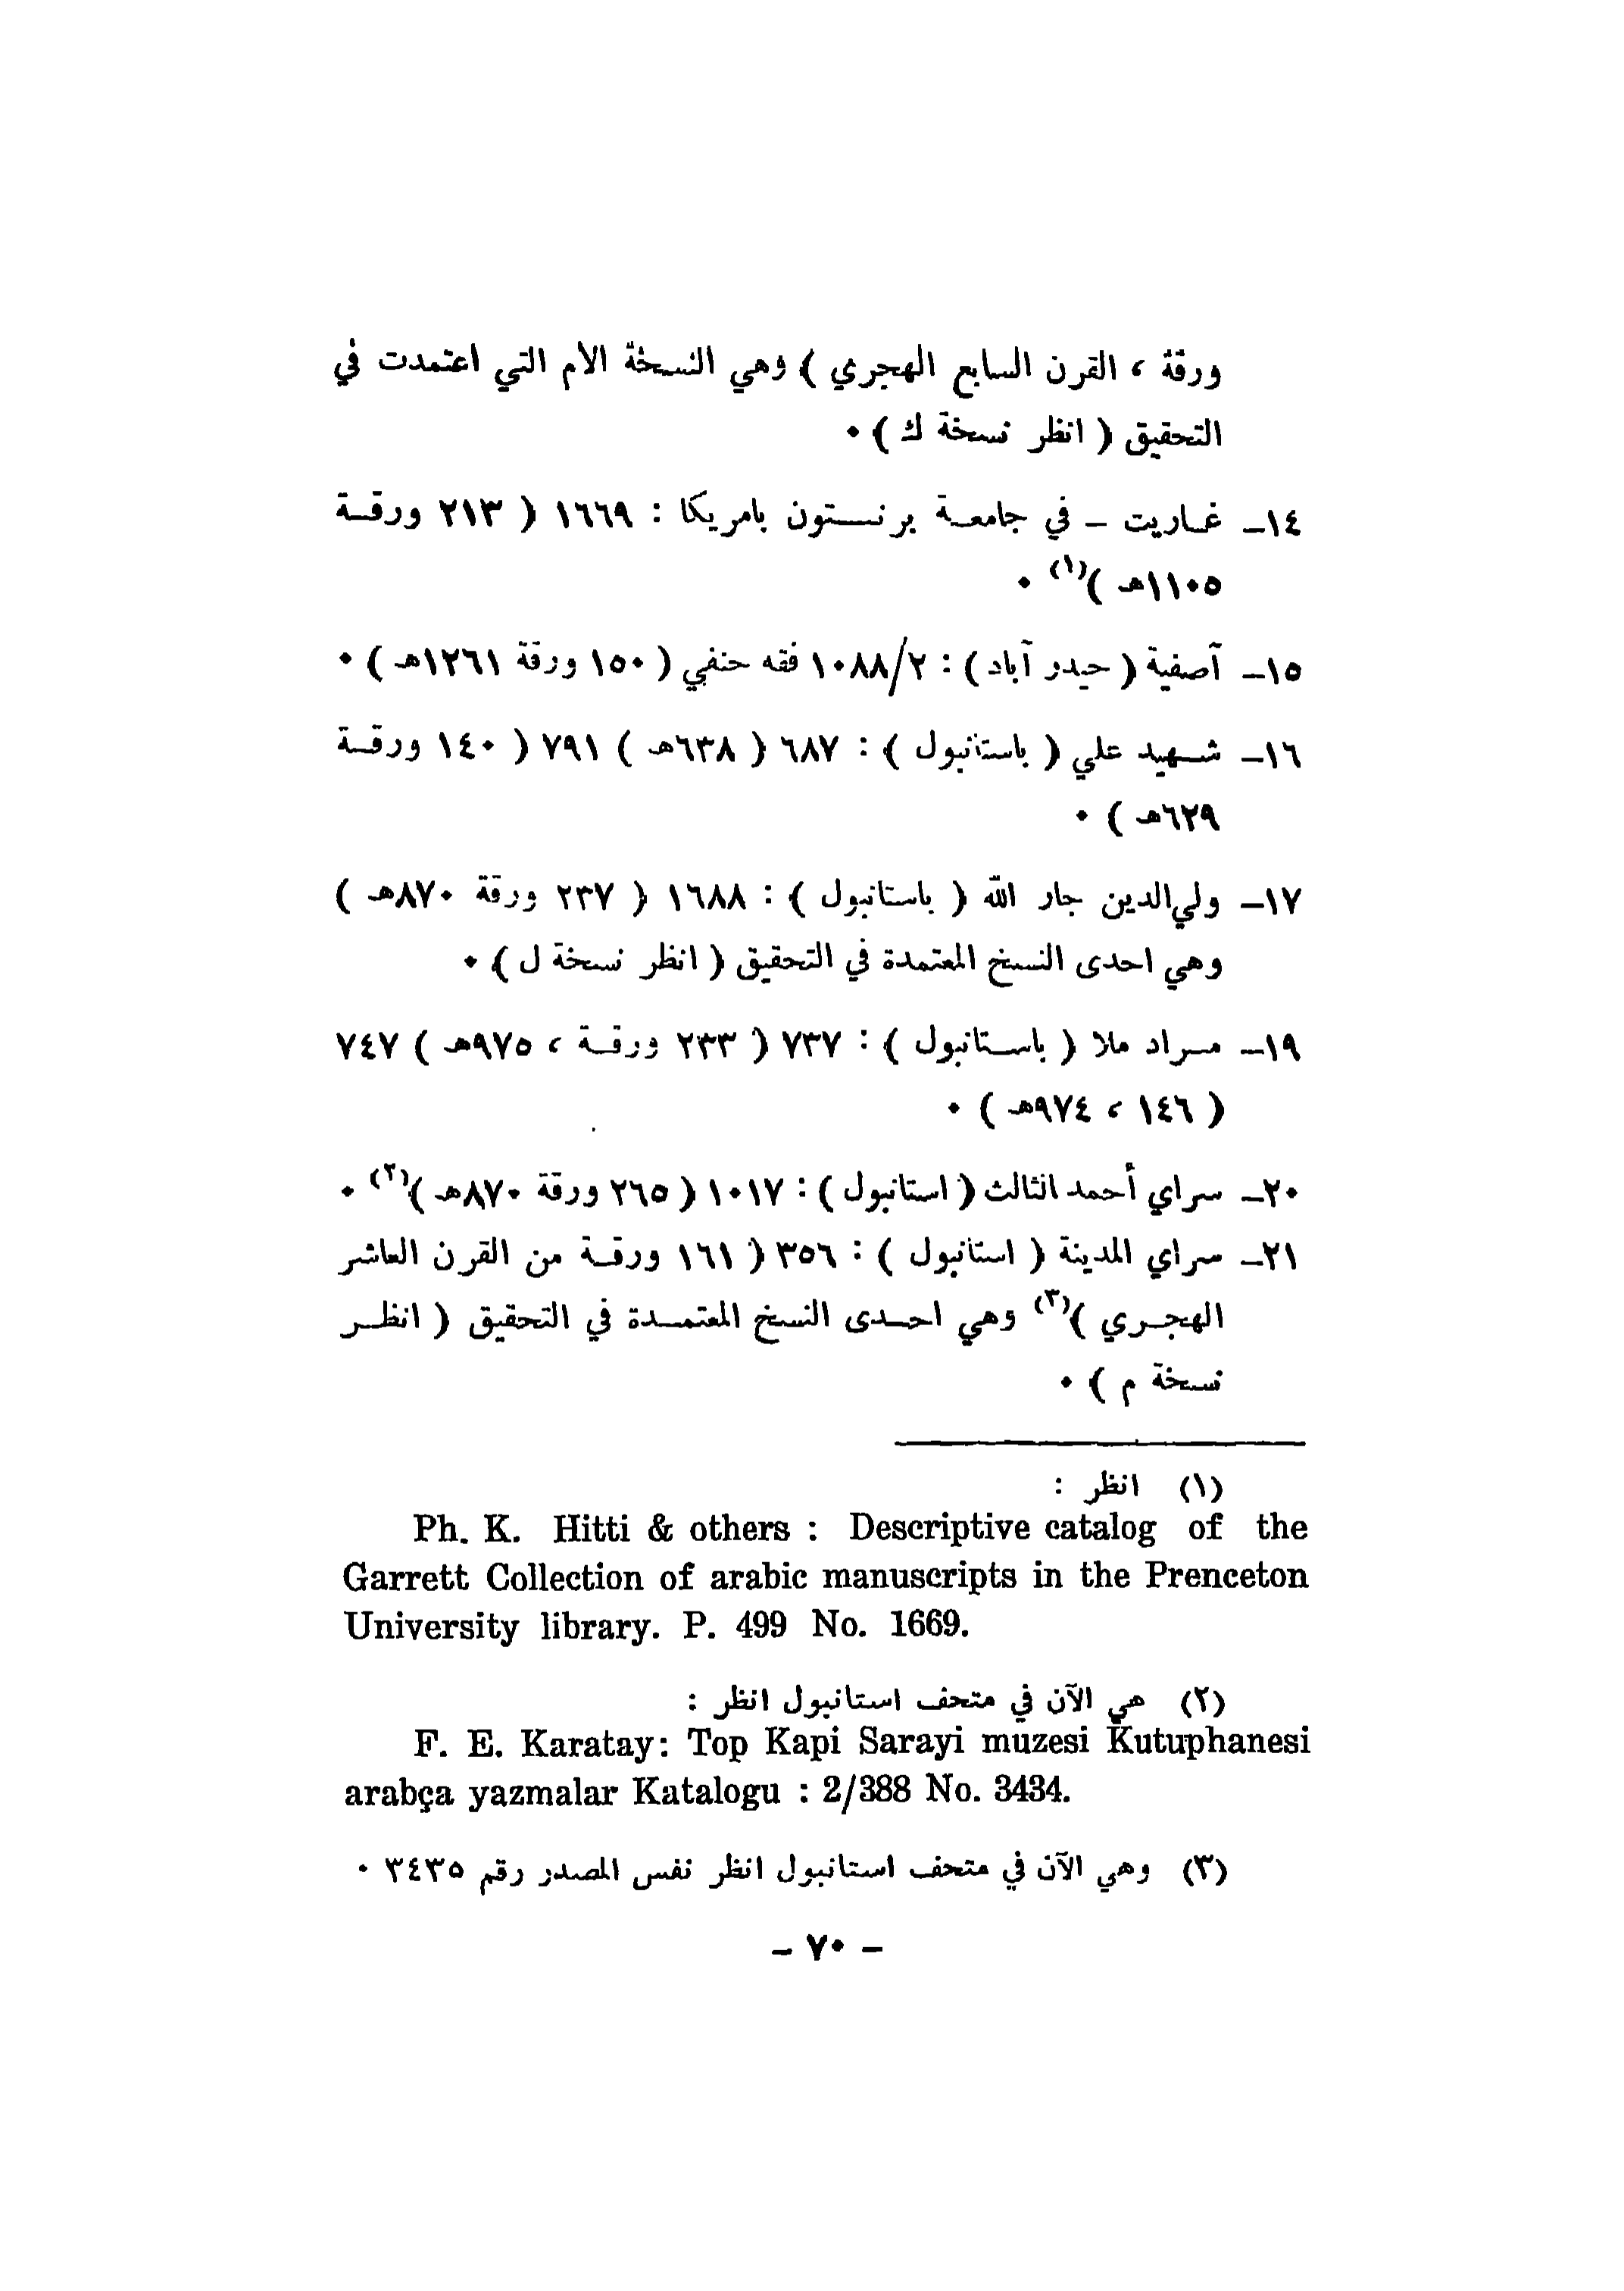 ورقة ، القرن السابع الهجري ) وهي النسخة الام التي اعتمدت في
التحقيق ( انظر نسخة ك ) ٠
١٤ـ غاريت – في جامعة برنستون بامريكا : ١٦٦٩ ( ٢١٣ ورقة
١١٠٥هـ )(١) ٠
١٥ـ آصفية ( حيدر آباد ) : ١٠٨٨/٢ فقه حنفي ( ١٥٠ ورقة ١٢٦١هـ ) ٠
١٦ـ شهيد علي ( باستانبول ) : ٦٨٧ ( ٦٣٨هـ ) ٧٩١ ( ١٤٠ ورقة
٦٢٩هـ ) ٠
١٧ـ ولي‌الدين جار الله ( باستانبول ) : ١٦٨٨ ( ٢٣٧ ورقة ٨٧٠هـ )
وهي احدى النسخ المعتمدة في التحقيق ( انظر نسخة ل ) ٠
١٩ـ مراد ملا ( باستانبول ) : ٧٣٧ ( ٢٣٣ ورقة ، ٩٧٥هـ ) ٧٤٧
( ١٤٦ ، ٩٧٤هـ ) ٠
٢٠ـ سراي أحمد الثالث ( استانبول ) : ١٠١٧ ( ٢٦٥ ورقة ٨٧٠هـ )(٢) ٠
٢١ـ سراي المدينة ( استانبول ) : ٣٥٦ ( ١٦١ ورقة من القرن العاشر
الهجري )(٣) وهي احدى النسخ المعتمدة في التحقيق ( انظر
نسخة م ) ٠
(١) انظر :
Ph. K. Hitti & others : Descriptive catalog of the
Garrett Collection of arabic manuscripts in the Prenceton
University library. P. 499 No. 1669.
(٢) هي الآن في متحف استانبول انظر :
F. E. Karatay: Top Kapi Sarayi muzesi Kutuphanesi
arabça yazmalar Katalogu : 2/388 No. 3434.
(٣) وهي الآن في متحف استانبول انظر نفس المصدر رقم ٣٤٣٥ ٠
– ٧٠ –